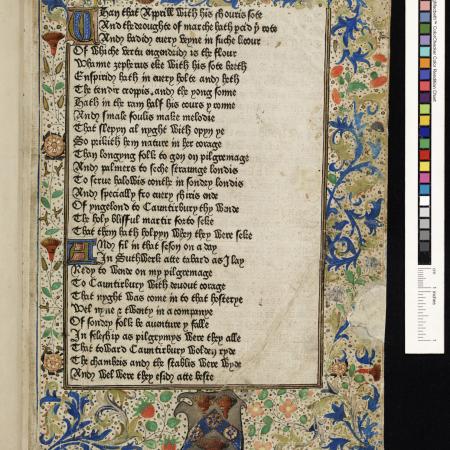 Whan that Apprill with his shouris sote
And the droughte of marche hath percid þe rote
And badid euery veyne in suche licour
Of whiche vertu engendrid is the flour
Whanne zepherus eke with his sote breth
Enspirid hath in euery holte and heth
The tendir croppis, and the yong sonne
Hath in the ram half his cours y ronne
And smale foulis make melodie
That slepyn al nyght with opyn ye
So prikith hem nature in her corage
Than longyng folk to gon on pilgremage
And palmers to seche straunge londis
To serue halowis couthe in sondry londis
And specially fro euery shiris ende
Of yngelond to Cauntirbury thy wende
The holy blisful martir forto seke
That them hath holpyn when they were seke
And fil in that seson on a day
In Suthwerk atte tabard as I lay
Redy to wende on my pilgremage
To Cauntirbury with deuout corage
That nyght was come in to that hosterye
Wel nyne & twenty in a companye
Of sondry folk be auenture y falle
In feleship as pilgrymys were they alle
That toward Cauntirbury wolden ryde
The chambris and the stablis were wyde
And wel were they esid atte beste
ColorChecker Color Rendition Chart